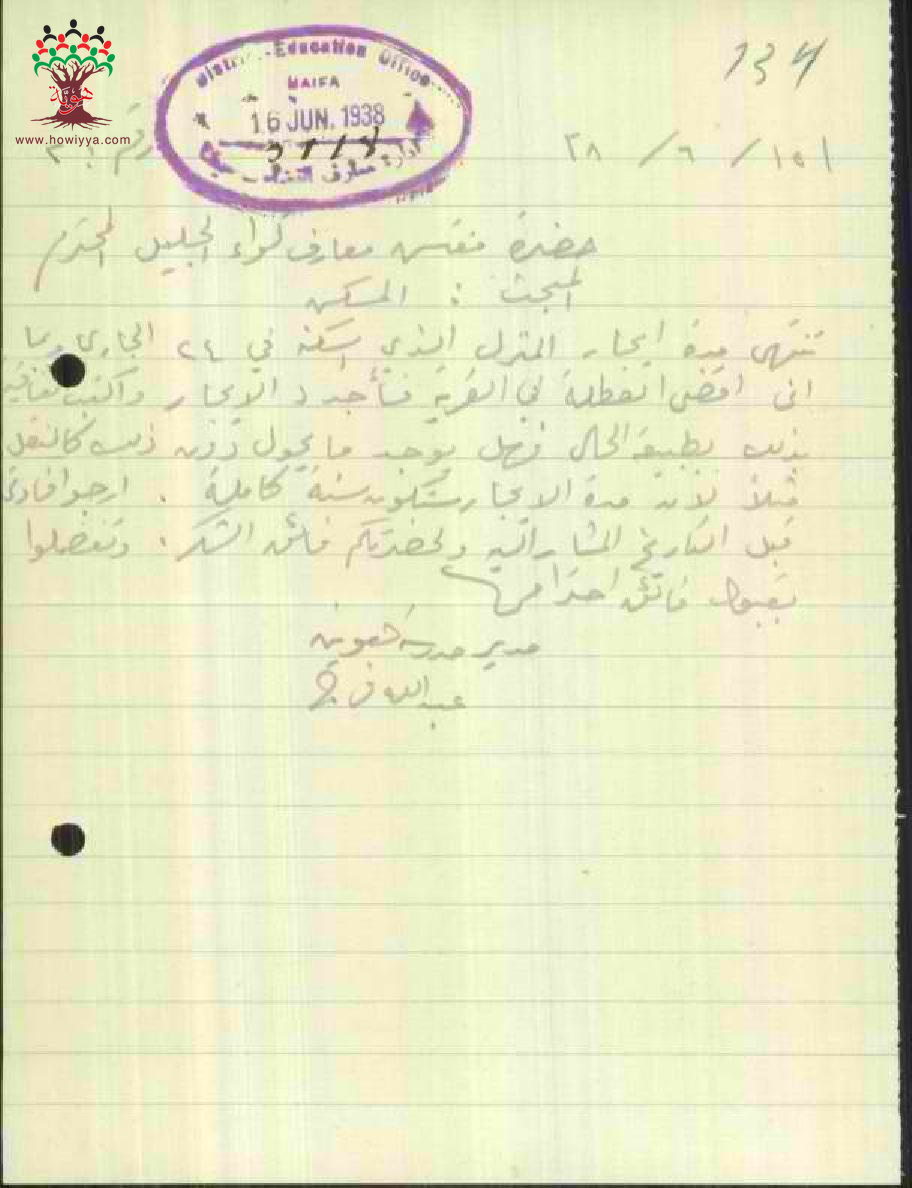 134
www.howiyya.com
District Education Office
HAIFA
16 JUN. 1938
رقم
٣٨ / ٦ / ١٥
حضرة مفتش معارف لواء الجليل المحترم
المبحث : المسكن
تنتهي مدة ايجار المنزل الذي اسكنه في ٢٤ الجاري وبما
اني اقضي العطلة في القرية فسأجدد الايجار واكتب
بذلك بطبيعة الحال فهل يوجد ما يحول دون ذلك كالنقل
مثلاً لان مدة الايجار ستكون سنة كاملة . ارجو افادتي
قبل التاريخ المشار اليه ولحضرتكم فائق الشكر . وتفضلوا
بقبول فائق احترامي
مدير مدرسة
عبدالله فرج